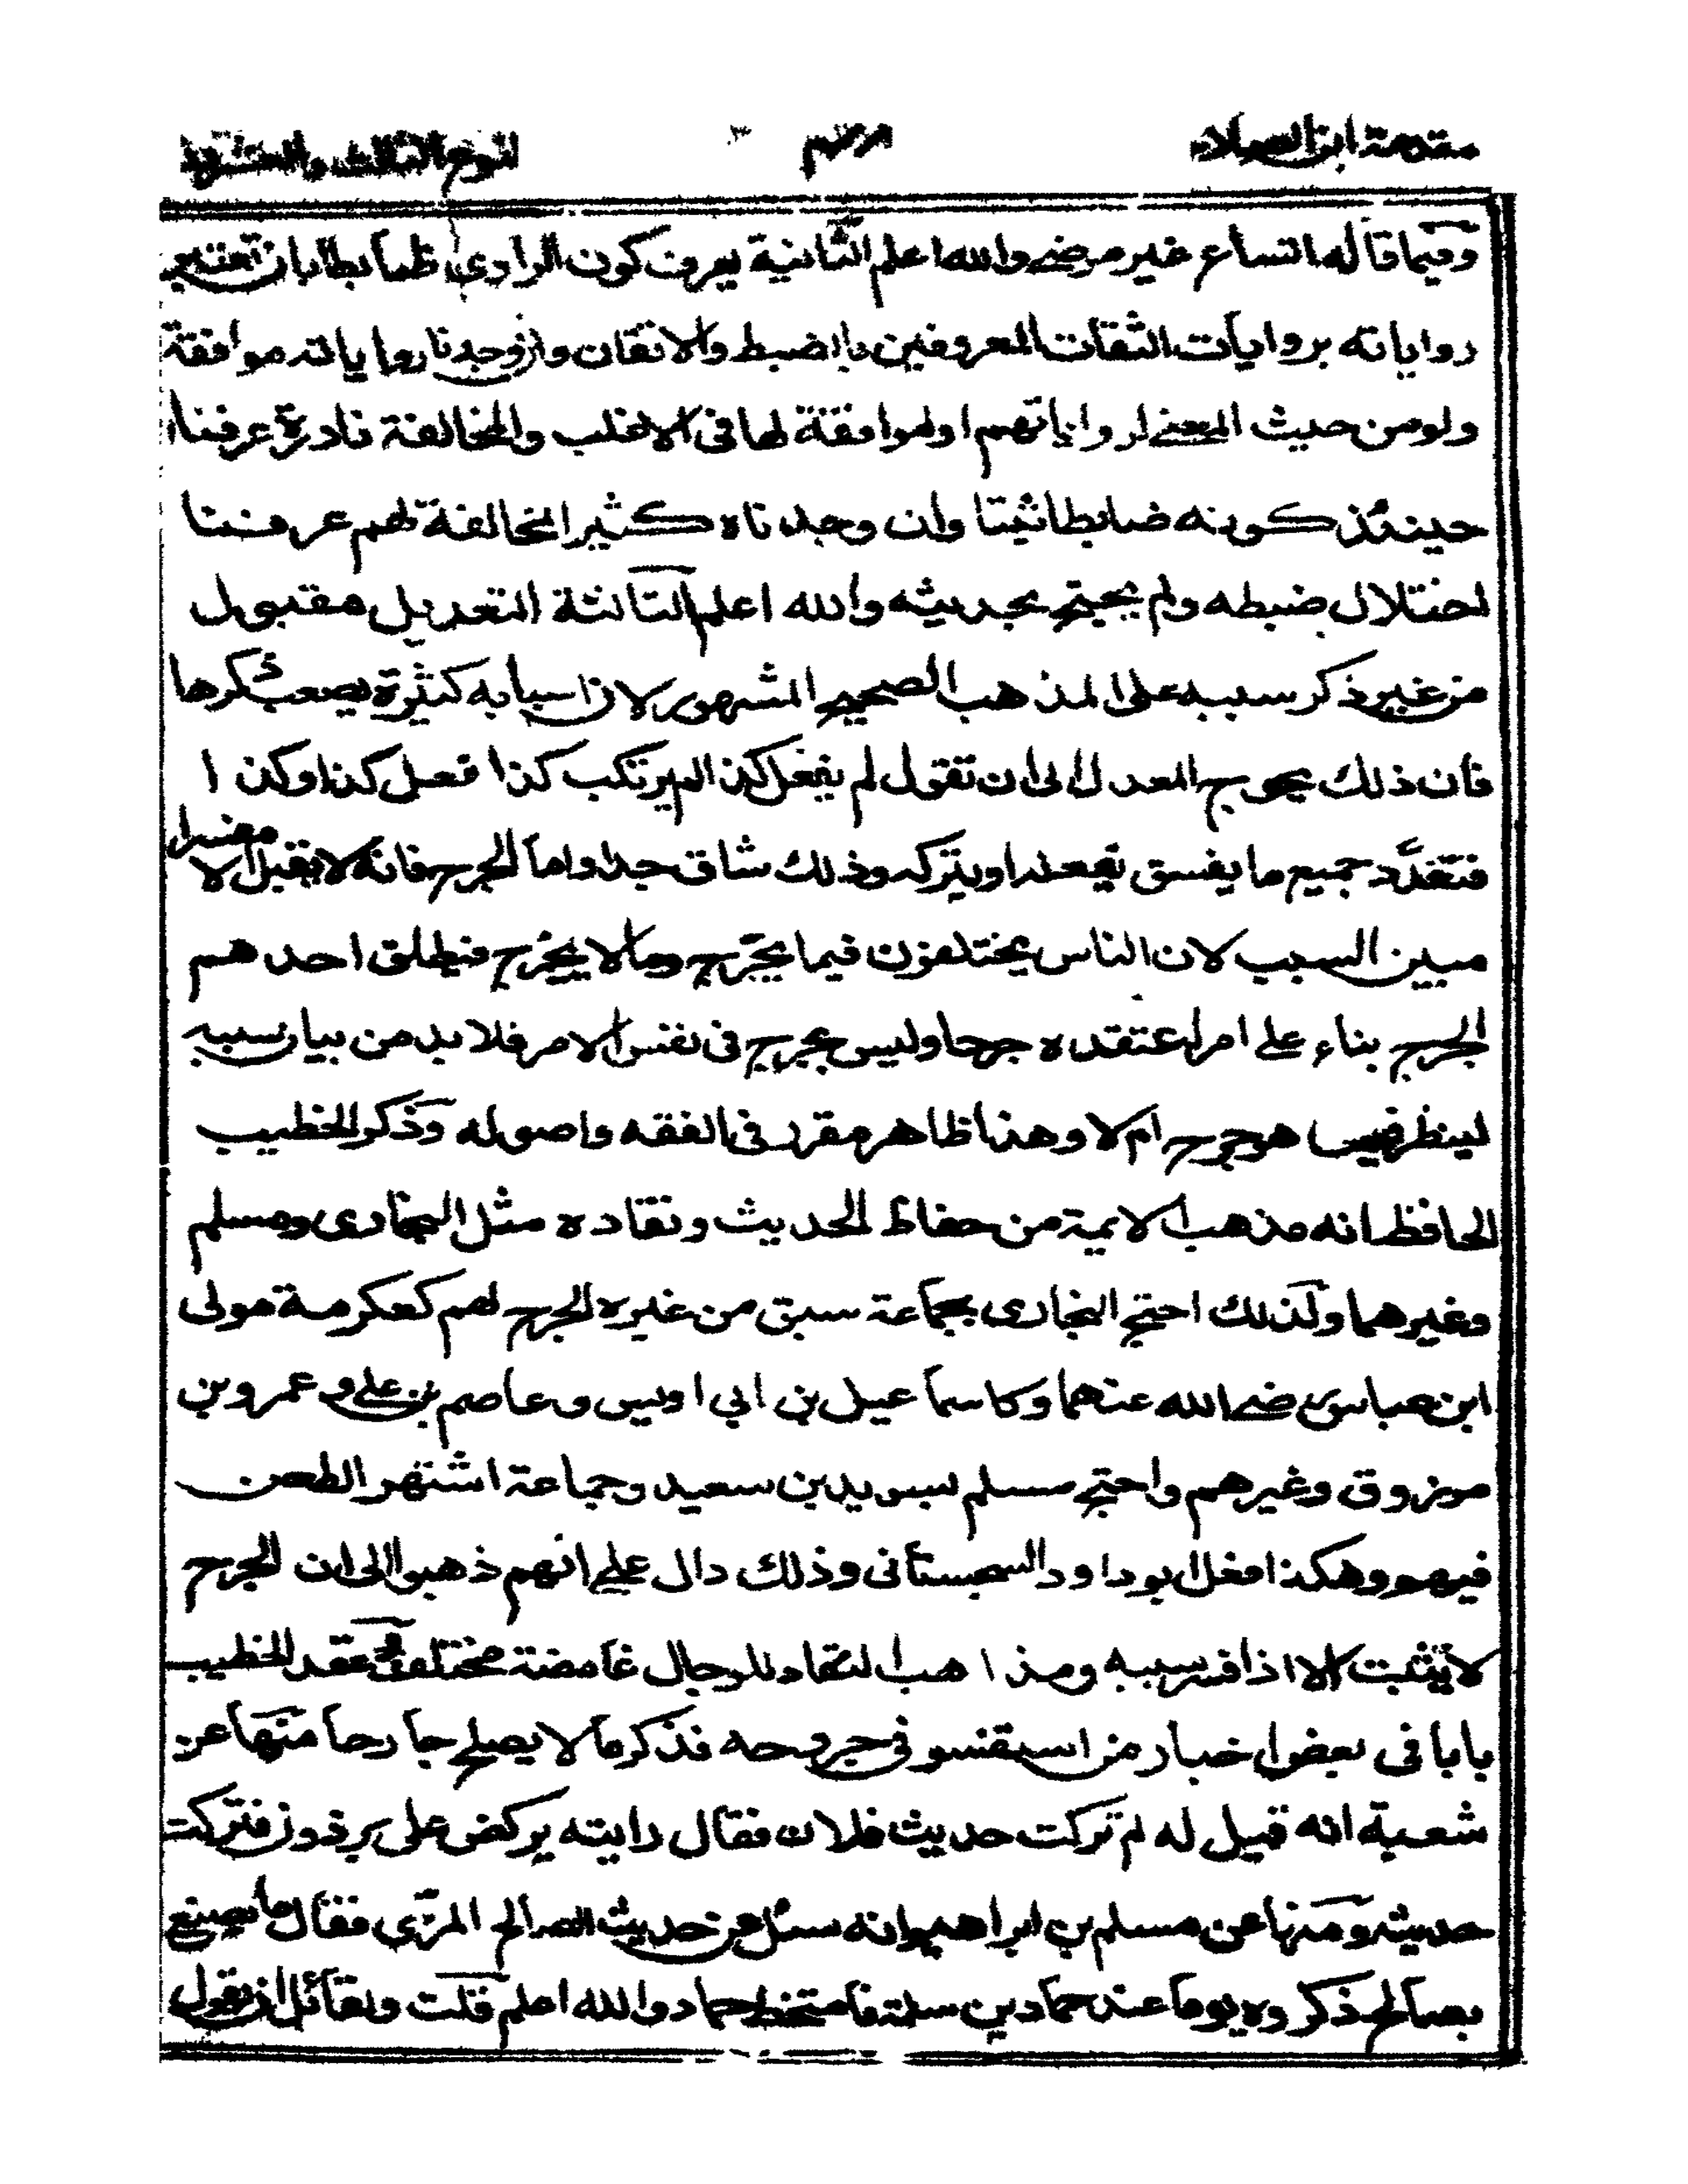 مقدمة ابن الصلاح النوع الثالث والعشرون
وفيما قاله اتساع غير مرضي والله اعلم الثانية يعرف كون الراوي ضابطا بان نعتبر
رواياته بروايات الثقات المعروفين بالضبط والاتقان فان وجدنا رواياته موافقة
ولو من حيث المعنى لرواياتهم او موافقة لها في الاغلب والمخالفة نادرة عرفنا
حينئذ كونه ضابطا ثبتا وان وجدناه كثير المخالفة لهم عرفنا
اختلال ضبطه ولم يحتج بحديثه والله اعلم الثالثة التعديل مقبول
من غير ذكر سببه على المذهب الصحيح المشهور لان اسبابه كثيرة يصعب ذكرها
فان ذلك يحوج المعدل الى ان تقول لم يفعل كذا لم يرتكب كذا فعل كذا وكذا
فتعدد جميع ما يفسق بفعله او بتركه وذلك شاق جدا واما الجرح فانه لا يقبل الا مفسرا
مبين السبب لان الناس يختلفون فيما يجرح وما لا يجرح فيطلق احدهم
الجرح بناء على امر اعتقده جرحا وليس بجرح في نفس الامر فلا بد من بيان سببه
لينظر فيه هو جرح ام لا وهذا ظاهر مقرر في الفقه واصوله وذكر الخطيب
الحافظ انه مذهب الايمة من حفاظ الحديث ونقاده مثل البخاري ومسلم
وغيرهما ولذلك احتج البخاري بجماعة سبق من غيره الجرح لهم كعكرمة مولى
ابن عباس رضي الله عنهما وكاسماعيل بن ابي اويس وعاصم بن علي وعمرو بن
مرزوق وغيرهم واحتج مسلم بسويد بن سعيد وجماعة اشتهر الطعن
فيهم وهكذا فعل ابو داود السجستاني وذلك دال على انهم ذهبوا الى ان الجرح
لا يثبت الا اذا فسر سببه ومذاهب النقاد للرجال غامضة مختلفة وعقد الخطيب
بابا في بعض اخبار من استفسر في جرحه فذكر ما لا يصلح جارحا منها عن
شعبة انه قيل له لم تركت حديث فلان فقال رايته يركض على برذون فتركت
حديثه ومنها عن مسلم بن ابراهيم انه سئل عن حديث الصالح المري فقال ما يصنع
بصالح ذكروه يوما عند حماد بن سلمة فامتخط حماد والله اعلم قلت ولقائل ان يقول